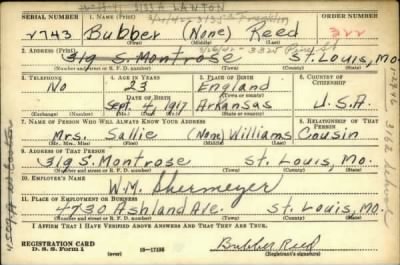 3133A LAWTON
SERIAL NUMBER 1. NAME (Print) ORDER NUMBER
V743 Bubber (None) Reed 322
(First) (Middle) (Last)
2. ADDRESS (Print)
319 S. Montrose St. Louis, Mo.
(Number and street or R. F. D. number) (Town) (County) (State)
3. TELEPHONE 4. AGE IN YEARS 5. PLACE OF BIRTH 6. COUNTRY OF CITIZENSHIP
No 23 England
DATE OF BIRTH (Town or county)
Sept 4, 1917 Arkansas U.S.A.
(Mo.) (Day) (Yr.) (State or country)
7. NAME OF PERSON WHO WILL ALWAYS KNOW YOUR ADDRESS 8. RELATIONSHIP OF THAT PERSON
Mrs. Sallie (Non) Williams Cousin
(Mr., Mrs., Miss) (First) (Middle) (Last)
9. ADDRESS OF THAT PERSON
319 S. Montrose St. Louis, Mo.
(Number and street or R. F. D. number) (Town) (County) (State)
10. EMPLOYER'S NAME
Wm. Shermeyer
11. PLACE OF EMPLOYMENT OR BUSINESS
4730 Ashland Ave. St. Louis, Mo.
(Number and street or R. F. D. number) (Town) (County) (State)
I AFFIRM THAT I HAVE VERIFIED ABOVE ANSWERS AND THAT THEY ARE TRUE.
REGISTRATION CARD
D. S. S. Form 1 (over) 16-17105
Bubber Reed
(Registrant's signature)